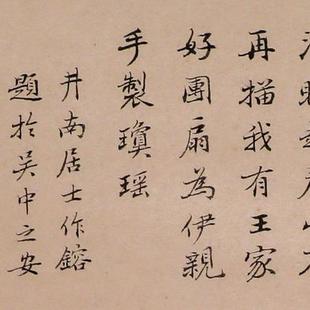 再描我有王家
好團扇為伊親
手製瓊瑶
井南居士作鎔
題於吴中之安